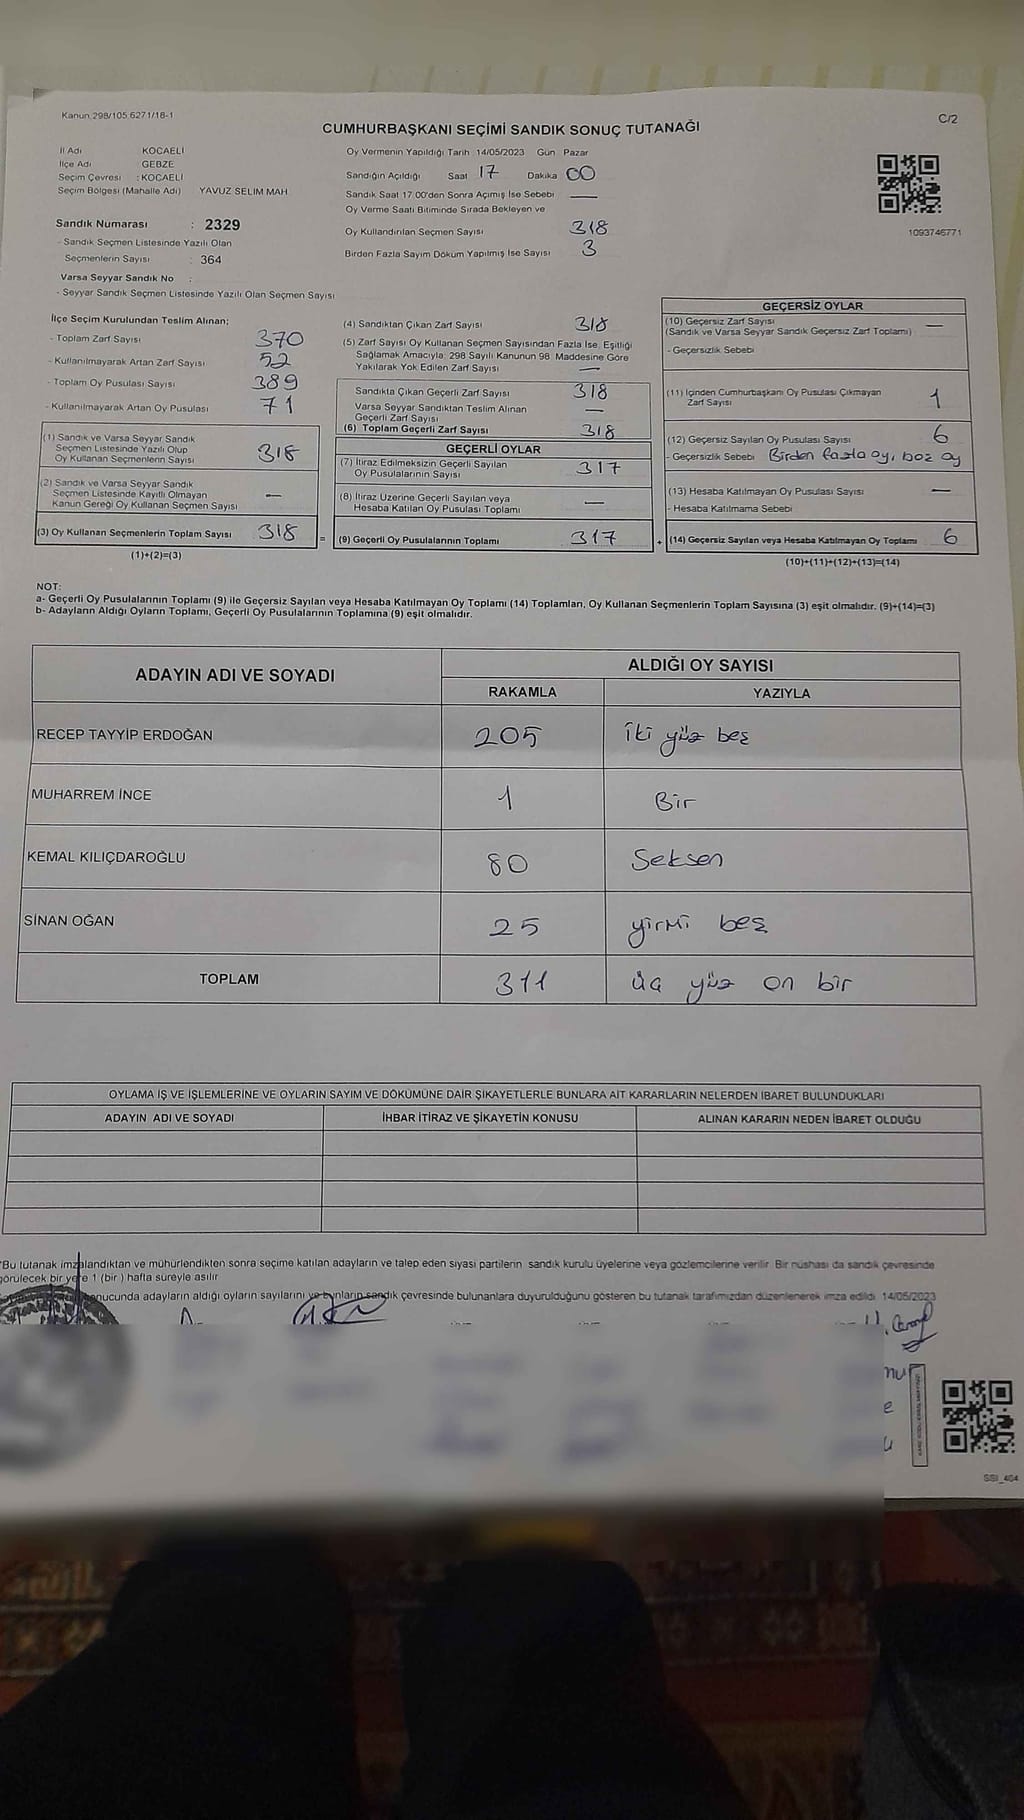 Kanun 298/105 6271/18-1
C/2
CUMHURBAŞKANI SEÇİMİ SANDIK SONUÇ TUTANAĞI
İl Adı KOCAELİ
İlçe Adı GEBZE
Seçim Çevresi : KOCAELİ
Seçim Bölgesi (Mahalle Adı) YAVUZ SELİM MAH.
Sandık Numarası : 2329
- Sandık Seçmen Listesinde Yazılı Olan
Seçmenlerin Sayısı : 364
Varsa Seyyar Sandık No :
- Seyyar Sandık Seçmen Listesinde Yazılı Olan Seçmen Sayısı
Oy Vermenin Yapıldığı Tarih 14/05/2023 Gün Pazar
Sandığın Açıldığı Saat 17 Dakika 00
Sandık Saat 17.00'den Sonra Açımış İse Sebebi —
Oy Verme Saati Bitiminde Sırada Bekleyen ve
Oy Kullandırılan Seçmen Sayısı 318
Birden Fazla Sayım Döküm Yapılmış İse Sayısı 3
1093746771
İlçe Seçim Kurulundan Teslim Alınan;
- Toplam Zarf Sayısı 370
- Kullanılmayarak Artan Zarf Sayısı 52
- Toplam Oy Pusulası Sayısı 389
- Kullanılmayarak Artan Oy Pusulası 71
(1) Sandık ve Varsa Seyyar Sandık
Seçmen Listesinde Yazılı Olup
Oy Kullanan Seçmenlerin Sayısı 318
(2) Sandık ve Varsa Seyyar Sandık
Seçmen Listesinde Kayıtlı Olmayan
Kanun Gereği Oy Kullanan Seçmen Sayısı —
(3) Oy Kullanan Seçmenlerin Toplam Sayısı 318
(1)+(2)=(3)
(4) Sandıktan Çıkan Zarf Sayısı 318
(5) Zarf Sayısı Oy Kullanan Seçmen Sayısından Fazla İse, Eşitliği
Sağlamak Amacıyla; 298 Sayılı Kanunun 98. Maddesine Göre
Yakılarak Yok Edilen Zarf Sayısı —
Sandıkta Çıkan Geçerli Zarf Sayısı 318
Varsa Seyyar Sandıktan Teslim Alınan
Geçerli Zarf Sayısı —
(6) Toplam Geçerli Zarf Sayısı 318
GEÇERLİ OYLAR
(7) İtiraz Edilmeksizin Geçerli Sayılan
Oy Pusulalarının Sayısı 317
(8) İtiraz Üzerine Geçerli Sayılan veya
Hesaba Katılan Oy Pusulası Toplamı —
= (9) Geçerli Oy Pusulalarının Toplamı 317
GEÇERSİZ OYLAR
(10) Geçersiz Zarf Sayısı
(Sandık ve Varsa Seyyar Sandık Geçersiz Zarf Toplamı) —
- Geçersizlik Sebebi
(11) İçinden Cumhurbaşkanı Oy Pusulası Çıkmayan
Zarf Sayısı 1
(12) Geçersiz Sayılan Oy Pusulası Sayısı 6
- Geçersizlik Sebebi Birden fazla oy, boz oy
(13) Hesaba Katılmayan Oy Pusulası Sayısı —
- Hesaba Katılmama Sebebi
+ (14) Geçersiz Sayılan veya Hesaba Katılmayan Oy Toplamı 6
(10)+(11)+(12)+(13)=(14)
NOT:
a- Geçerli Oy Pusulalarının Toplamı (9) ile Geçersiz Sayılan veya Hesaba Katılmayan Oy Toplamı (14) Toplamları, Oy Kullanan Seçmenlerin Toplam Sayısına (3) eşit olmalıdır. (9)+(14)=(3)
b- Adayların Aldığı Oyların Toplamı, Geçerli Oy Pusulalarının Toplamına (9) eşit olmalıdır.
ADAYIN ADI VE SOYADI ALDIĞI OY SAYISI
RAKAMLA YAZIYLA
RECEP TAYYİP ERDOĞAN 205 iki yüz beş
MUHARREM İNCE 1 Bir
KEMAL KILIÇDAROĞLU 80 Seksen
SİNAN OĞAN 25 yirmi beş
TOPLAM 311 üç yüz on bir
OYLAMA İŞ VE İŞLEMLERİNE VE OYLARIN SAYIM VE DÖKÜMÜNE DAİR ŞİKAYETLERLE BUNLARA AİT KARARLARIN NELERDEN İBARET BULUNDUKLARI
ADAYIN ADI VE SOYADI İHBAR İTİRAZ VE ŞİKAYETİN KONUSU ALINAN KARARIN NEDEN İBARET OLDUĞU
*Bu tutanak imzalandıktan ve mühürlendikten sonra seçime katılan adayların ve talep eden siyasi partilerin sandık kurulu üyelerine veya gözlemcilerine verilir. Bir nüshası da sandık çevresinde
görülecek bir yere 1 (bir) hafta süreyle asılır
sonucunda adayların aldığı oyların sayılarını ve bunların sandık çevresinde bulunanlara duyurulduğunu gösteren bu tutanak tarafımızdan düzenlenerek imza edildi. 14/05/2023
SSI_404